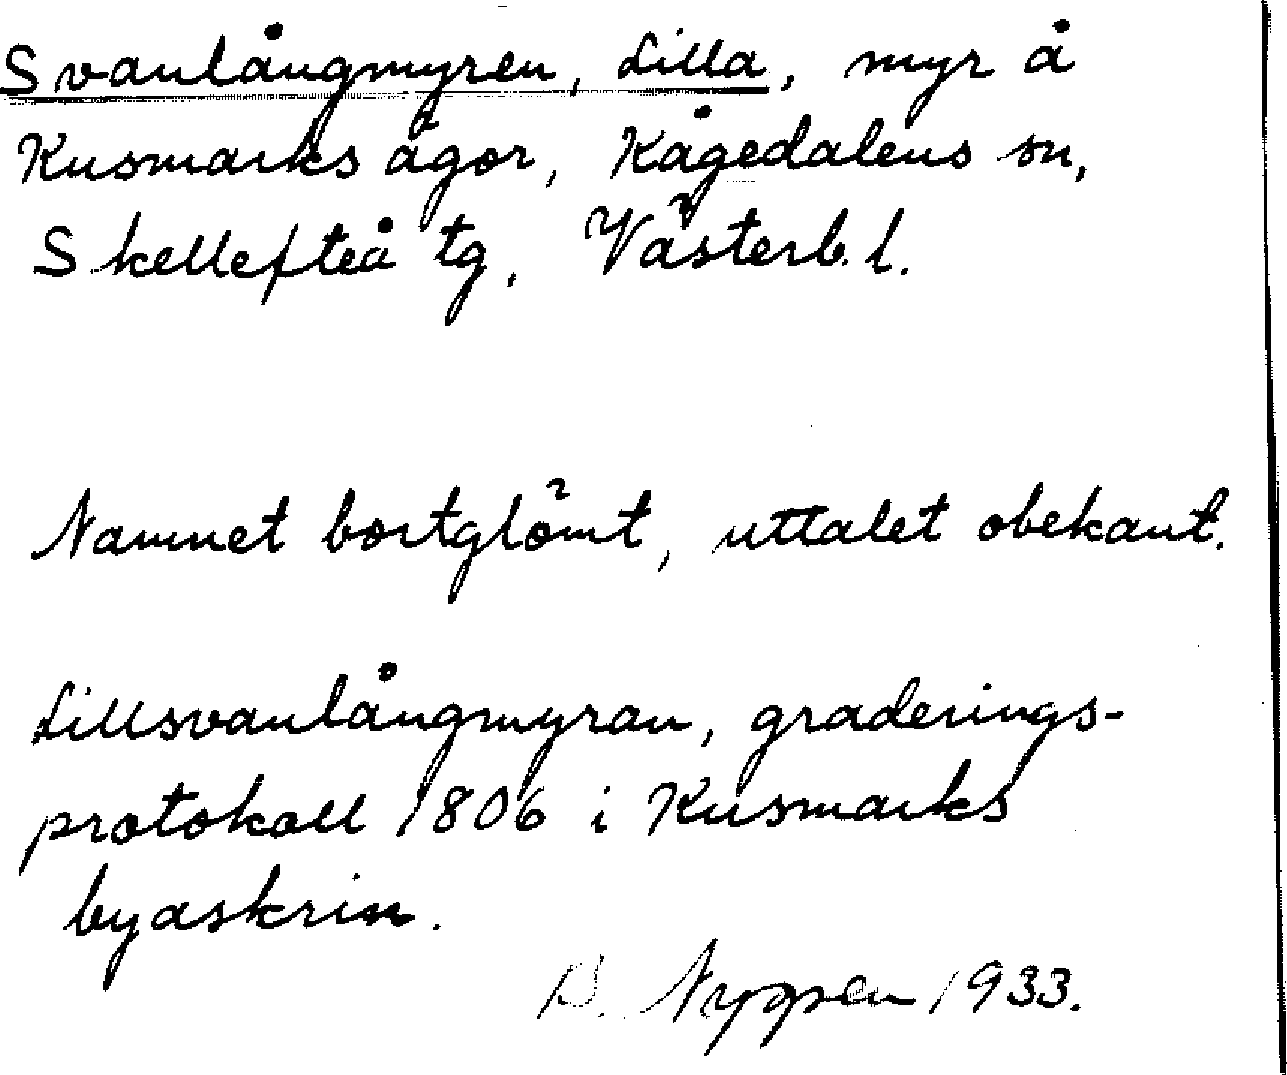 Svanlångmyren, Lilla, myr å
Kusmarks ägor, Kågedalens sn,
Skellefteå tg, Västerb. l.
Namnet bortglömt, uttalet obekant.
Lillsvanlångmyran, graderings-
protokoll 1806 i Kusmarks
byaskrin.
1933.